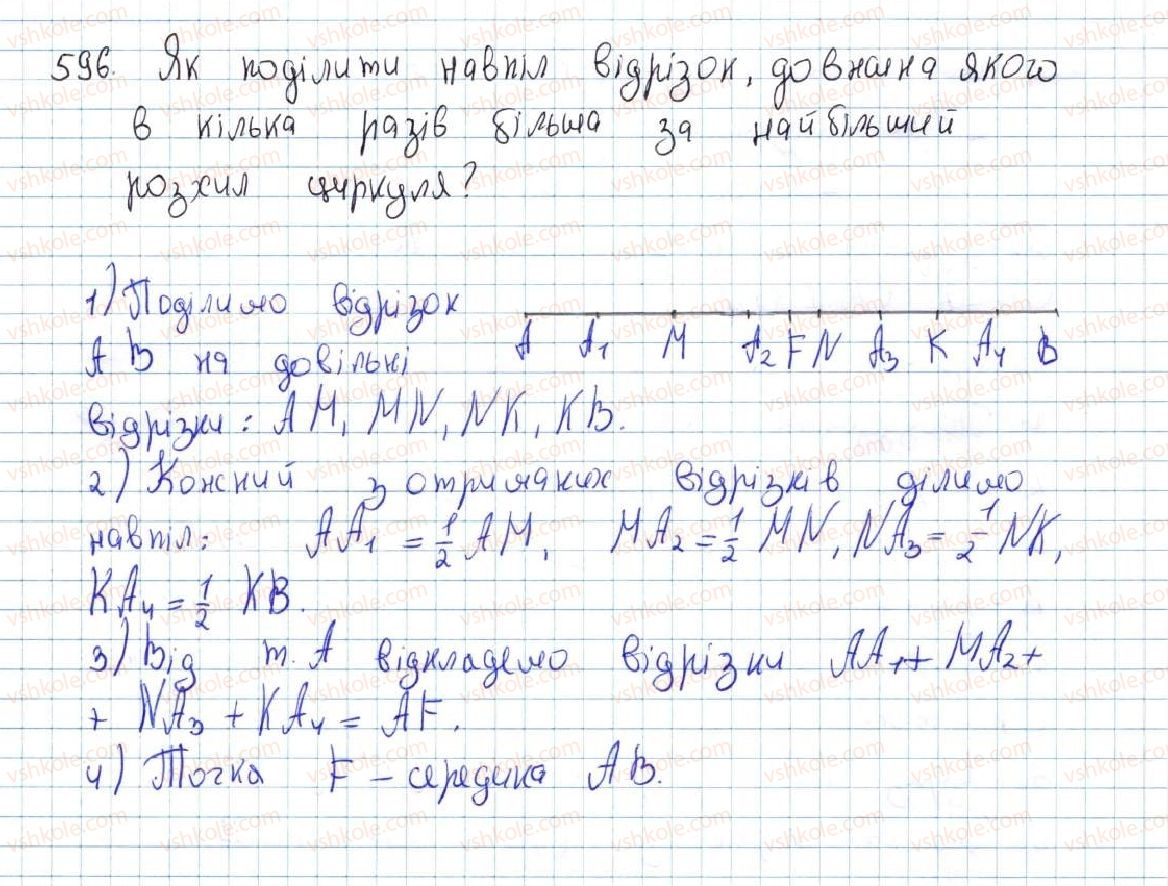 596. Як поділити навпіл відрізок, довжина якого
в кілька разів більша за найбільший
розхил циркуля?
1) Поділимо відрізок
АВ на довільні
A A₁ M A₂ F N A₃ K A₄ B
відрізки: AM, MN, NK, KB.
2) Кожний з отриманих відрізків ділимо
навпіл: AA₁ = 1/2 AM, MA₂ = 1/2 MN, NA₃ = 1/2 NK,
KA₄ = 1/2 KB.
3) Від т. А відкладемо відрізки AA₁ + MA₂ +
+ NA₃ + KA₄ = AF.
4) Точка F – середина AB.